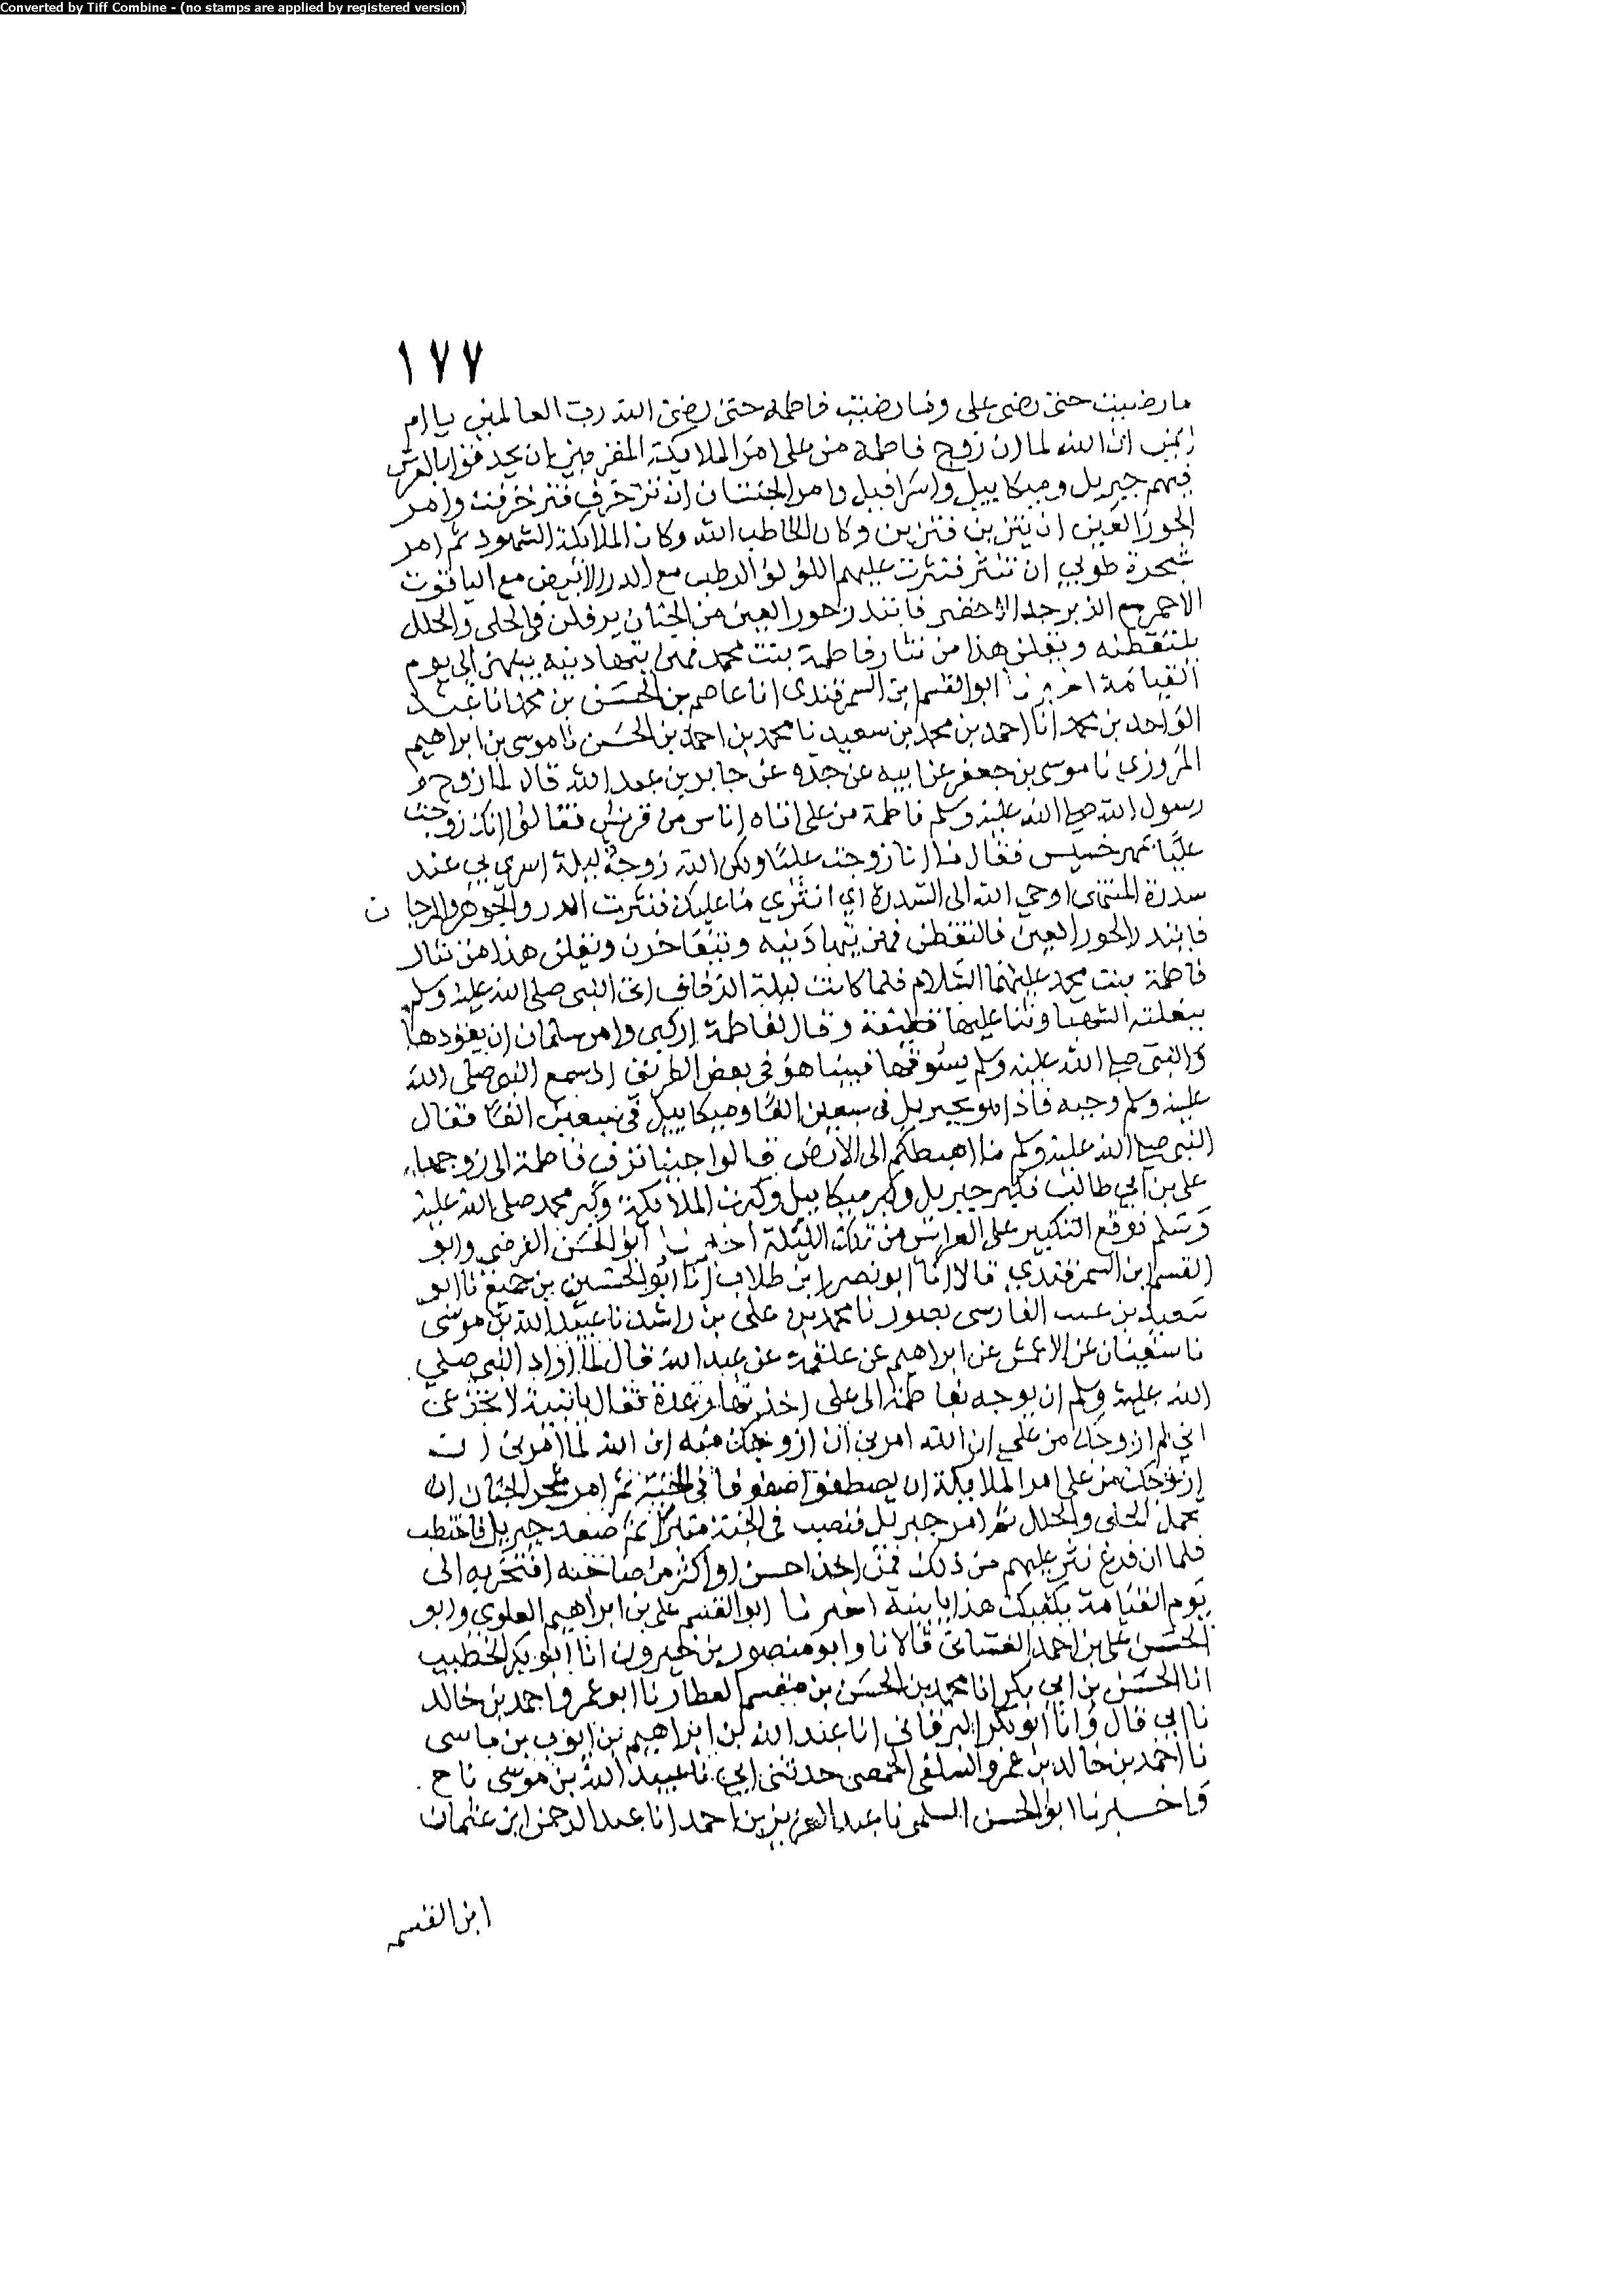 Converted by Tiff Combine - (no stamps are applied by registered version)
١٧٧
ما رضيت حتى رضى على وما رضيت فاطمة حتى رضى الله رب العالمين يا ام
ايمن ان الله لما ان زوج فاطمة من على امر الملايكة المقربين ان يحدقوا بالعرش
فيهم جبريل وميكاييل واسرافيل وامر الجنان ان تزخرف فتزخرفت وامر
الحور العين ان يتزين فتزين وكان الخاطب الله وكان الملائكة الشهود ثم امر
شجرة طوبى ان تنثر فنثرت عليهم اللؤلؤ الرطب مع الدر الابيض مع الياقوت
الاحمر مع الزبرجد الاخضر فابتدر حور العين من الجنان يرفلن في الحلى والحلل
يلتقطنه ويقلن هذا من نثار فاطمة بنت محمد فهن يتهادينه بينهن الى يوم
القيامة اخبرنا ابو القسم ابن السمرقندى انا عاصم بن الحسن بن محمد انا عبد
الواحد بن محمد انا احمد بن محمد بن سعيد نا محمد بن احمد بن الحسن نا موسى بن ابراهيم
المروزي نا موسى بن جعفر عن ابيه عن جده عن جابر بن عبد الله قال لما زوج
رسول الله صلى الله عليه وسلم فاطمة من على اتاه اناس من قريش فقالوا انك زوجت
عليا بمهر خسيس فقال ما انا زوجت عليا ولكن الله زوجه ليلة اسري بي عند
سدرة المنتهى اوحى الله الى السدرة اي انثري ما عليك فنثرت الدر والجوهر والمرجان
فابتدر الحور العين فالتقطن فهن يتهادينه ويتفاخرن ويقلن هذا من نثار
فاطمة بنت محمد عليهما السلام فلما كانت ليلة الزفاف اتى النبى صلى الله عليه وسلم
ببغلته الشهبا وثنا عليها قطيفة وقال لفاطمة اركبى وامر سلمان ان يقودها
والنبى صلى الله عليه وسلم يسوقها فبينا هو فى بعض الطريق اذ سمع النبى صلى الله
عليه وسلم وجبه فاذا هو بجبريل فى سبعين الفا وميكاييل فى سبعين الفا فقال
النبى صلى الله عليه وسلم ما اهبطكم الى الارض قالوا جينا نزف فاطمة الى زوجها
على بن ابي طالب فكبر جبريل وكبر ميكاييل وكبرت الملائكة وكبر محمد صلى الله عليه
وسلم فوقع التكبير على العرايس من تلك الليلة اخبرنا ابو الحسن الفرضى وابو
القسم ابن السمرقندي قالا انا ابو نصر ابن طلاب انا ابو الحسين بن جميع نا ابو
سعيد بن الفارسى بصور نا محمد بن على بن راشد نا عبيد الله بن موسى
نا سفيان عن الاعمش عن ابراهيم عن علقمة عن عبد الله قال لما اراد النبى صلى
الله عليه وسلم ان يوجه بفاطمة الى على اخذتها رعدة فقال يا بنية لا تجزعى
اني لم ازوجك من على ان الله امرني ان ازوجك منه ان الله لما امرنى ان
ازوجك من على امر الملايكة ان يصطفوا صفوفا في الجنة ثم امر شجر الجنان ان
تحمل الحلى والحلل ثم امر جبريل فنصب فى الجنة منبرا ثم صعد جبريل فاختطب
فلما ان فرغ نثر عليهم من ذلك فمن اخذ احسن او اكثر من صاحبه افتخر به الى
يوم القيامة يكفيك هذا يا بنية اخبرنا ابو القسم على بن ابراهيم العلوي وابو
الحسن على بن احمد الغسانى قالا نا وابو منصور بن خيرون انا ابو بكر الخطيب
انا الحسن بن ابي بكر انا محمد بن الحسن بن مقسم العطار نا ابو عمرو احمد بن خالد
نا ابي قال وانا ابو بكر البرقانى انا عبد الله بن ابراهيم بن ايوب بن ماسى
نا احمد بن خالد بن عمرو السلفى الحمصى حدثنى ابي نا عبيد الله بن موسى نا ح
واخبرنا ابو الحسن السلمى نا عبد العزيز بن احمد انا عبد الرحمن ابن عثمان
ابن القسم